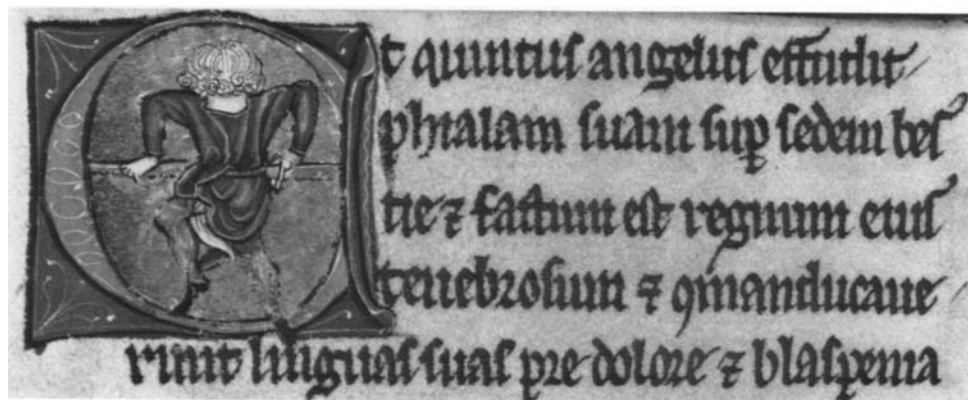 Et quintus angelus effudit
phialam suam suꝑ sedem bes
tie ⁊ factum est regnum eius
tenebrosum ⁊ ꝯmanducaue
runt linguas suas pre dolore ⁊ blasphema